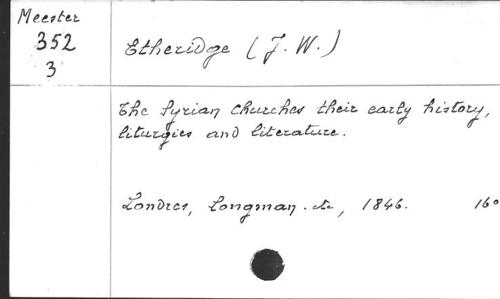 Meester
352
3
Etheridge (J. W.)
The Syrian Churches their early history,
liturgies and literature.
Londres, Longman. etc, 1846. 16°